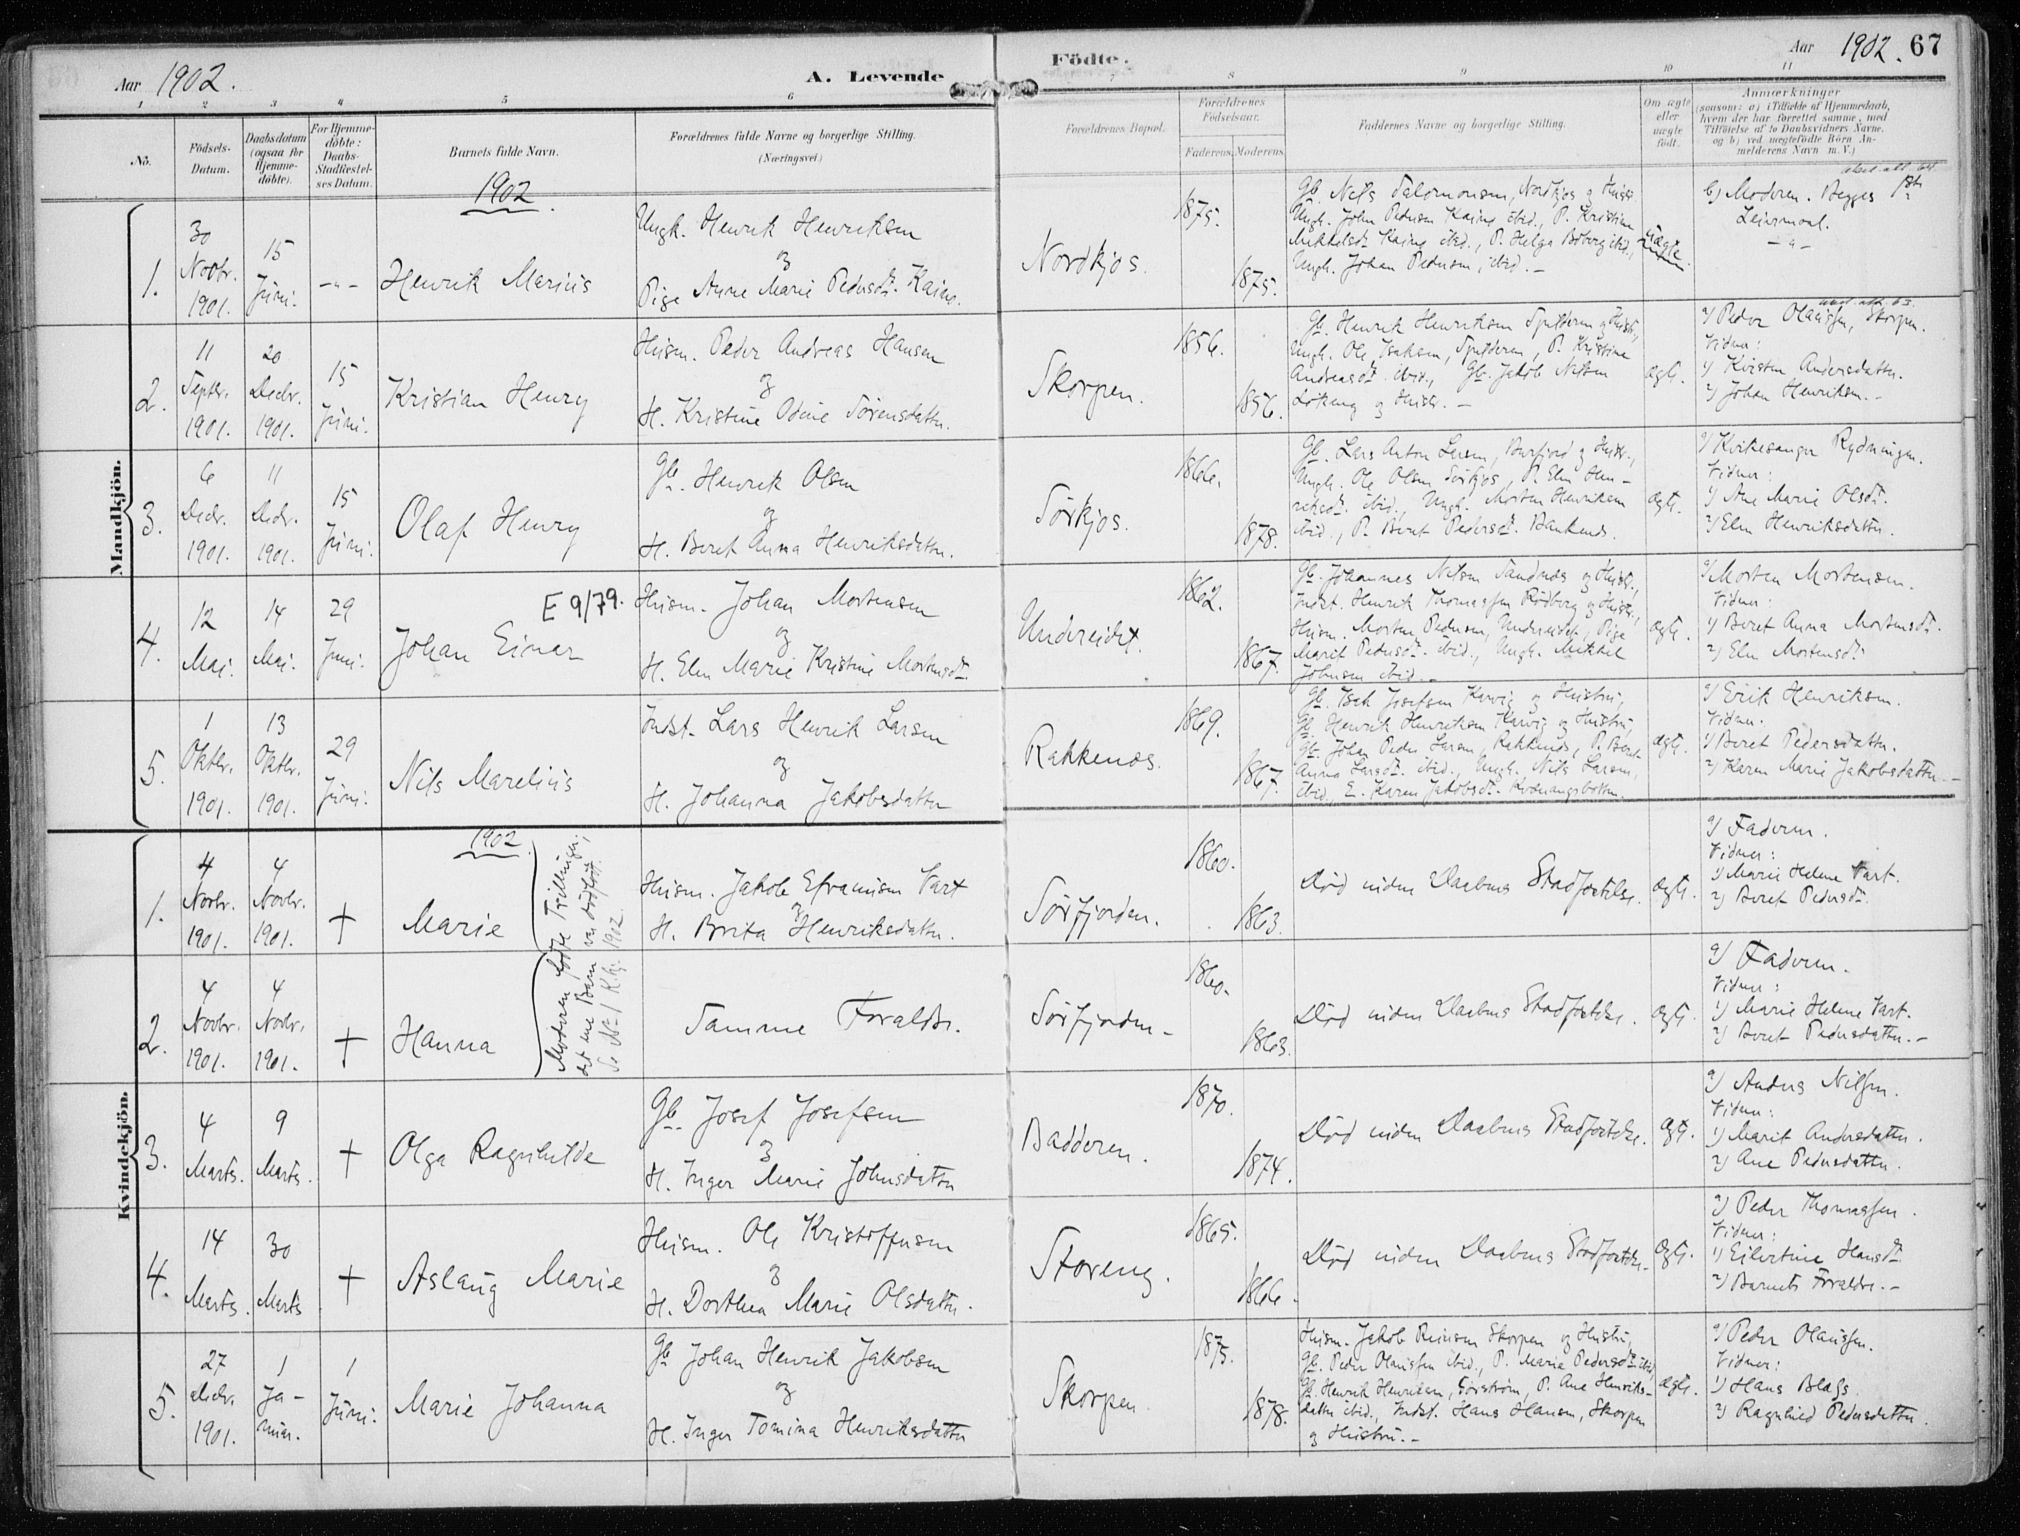 Aar 1902.
A. Levende
Födte.
Aar 1902. 67
1 2 3 4 5 6 7 8 9 10 11
No.
Födsels-
Datum.
Daabsdatum
(ogsaa for
Hjemme-
döbte).
For Hjemme-
döbte:
Daabs-
Stadfæstel-
ses Datum.
Barnets fulde Navn.
Forældrenes fulde Navne og borgerlige Stilling.
(Næringsvei)
Forældrenes Bopæl.
Forældrenes
Födselsaar.
Faderens. Moderens.
Faddernes Navne og borgerlige Stilling.
Om ægte
eller
uægte
födt.
Anmærkninger
(saasom: a) i Tilfælde af Hjemmedaab,
hvem der har forrettet samme, med
Tilföielse af to Daabsvidners Navne.
og b) ved uægtefödte Börn An-
melderens Navn m. V.)
Mandkjön.
1902
1.
30
Novbr.
1901.
15
Juni.
-"-
Henrik Marius
Ungk. Henrik Henriksen
og
Pige Anne Marie Pedersdr. Kaino.
Nordkjos.
1875.
1875.
Gb. Nils Salomonsen, Nordkjos og Hustr.
Ungk. John Pedersen Kaino ibid., P. Kristine
Mikkelsdr. Kaino ibid., P. Helga Boberg ibid.,
Ungk. Johan Pedersen, ibid. -
uægte
b) Moderen. Begges 1ste
Leiermaal.
-"-
2.
11
Septbr.
1901.
20
Decbr.
1901.
15
Juni.
Kristian Henry
Husm. Peder Andreas Hansen
og
H. Kristine Odine Sørensdatter.
Skorpen.
1856.
1856.
Gb. Henrik Henriksen Spilderen og Hustr.,
Ungk. Ole Isaksen, Spilderen, P. Kristine
Andreasdr. ibid., Gb. Jakob Nilsen
og Hustr. -
ægte.
a) Peder Olaussen, Skorpen.
Vidner:
1) Kirsten Andersdatter.
2) Johan Henriksen. -
3.
6
Decbr.
1901.
11
Decbr.
1901.
15
Juni.
Olaf Henry
Gb. Henrik Olsen
og
H. Beret Anna Henriksdatter.
Sørkjos.
1866.
1878.
Gb. Lars Anton Larsen, Burfjord og Hustr.,
Ungk. Ole Olsen Sørkjos, P. Elen Hen-
riksdr. ibid., Ungk. Morten Henriksen
ibid., P. Beret Pedersdr. Bankenes.
ægte.
a) Kirkesanger Rydningen.
Vidner:
1) Ane Marie Olsdr.
2) Elen Henriksdatter.
4.
12
Mai.
14
Mai.
29
Juni.
E 9/79.
Johan Einar
Husm. Johan Mortensen
og
H. Elen Marie Kristine Mortensdr.
Undereidet.
1862.
1867.
Gb. Johannes Nilsen Sandnes og Hustr.,
Indst. Henrik Thomassen Rødberg og Hustr.,
Husm. Morten Pedersen, Undereidet, Pige
Marit Pedersdr. ibid., Ungk. Mikkel
Johnsen ibid. -
ægte.
a) Morten Mortensen.
Vidner:
1) Beret Anna Mortensdr.
2) Elen Mortensdr.
5.
1
Oktbr.
1901.
13
Oktbr.
1901.
29
Juni.
Nils Marelius
Indst. Lars Henrik Larsen
og
H. Johanna Jakobsdatter
Rakkenes.
1869.
1867.
Gb. Isak Josefsen Karvig og Hustru,
Gb. Henrik Henriksen Karvig og Hustru,
Gb. Johan Peder Larsen, Rakkenes, P. Beret
Anna Larsdr. ibid., Ungk. Nils Larsen,
ibid., E. Karen Jakobsdr. Kvænangsbotten.
ægte.
a) Erik Henriksen.
Vidner.
1) Beret Pedersdatter.
2) Karen Marie Jakobsdatter. -
Kvindekjön.
1902.
1.
4
Novbr.
1901.
4
Novbr.
1901.
+
Marie
Moderen fødte Trillinger,
det ene Barn var dødfødt.
Se No 1 Kkj. 1902.
Husm. Jakob Efraimsen Vart
og
H. Brita Henriksdatter.
Sørfjorden.
1860.
1863.
Død inden Daabens Stadfæstelse.
ægte.
a) Faderen.
Vidner:
1) Marie Helene Vart.
2) Beret Pedersdr.
2.
4
Novbr.
1901.
4
Novbr.
1901.
+
Hanna
Samme Forældre.
Sørfjorden -
1860.
1863.
Død inden Daabens Stadfæstelse.
ægte.
a) Faderen.
Vidner:
1) Marie Helene Vart.
2) Beret Pedersdatter. -
3.
4
Marts.
9
Marts.
+
Olga Ragnhilde
Gb. Josef Josefsen
og
H. Inger Marie Johnsdatter
Badderen.
1870.
1874.
Død inden Daabens Stadfæstelse.
ægte.
a) Anders Nilsen.
Vidner:
1) Marit Andersdatter.
2) Ane Pedersdatter.
4.
14
Marts.
30
Marts
+
Aslaug Marie
Husm. Ole Kristoffersen
og
H. Dorthea Marie Olsdatter.
Storeng.
1865.
1866.
Død inden Daabens Stadfæstelse.
ægte.
a) Peder Thomassen.
Vidner:
1) Eilertine Hansdr.
2) Barnets Forældre. -
5.
27
Decbr.
1901.
1
Ja-
nuar.
1
Juni.
Marie Johanna
Gb. Johan Henrik Jakobsen
og
H. Inger Tomina Henriksdatter
Skorpen.
1875.
1878.
Husm. Jakob Reiersen Skorpen og Hustru,
Gb. Peder Olaussen ibid., P. Marie Pedersdr. ibid.
Gb. Henrik Henriksen, Sørstrøm, P. Ane Henriks-
datter ibid., Indst. Hans Hansen, Skorpen
og Hustru. -
ægte.
a) Peder Olaussen.
Vidner:
1) Hans Blegs.
2) Ragnhild Pedersdatter.